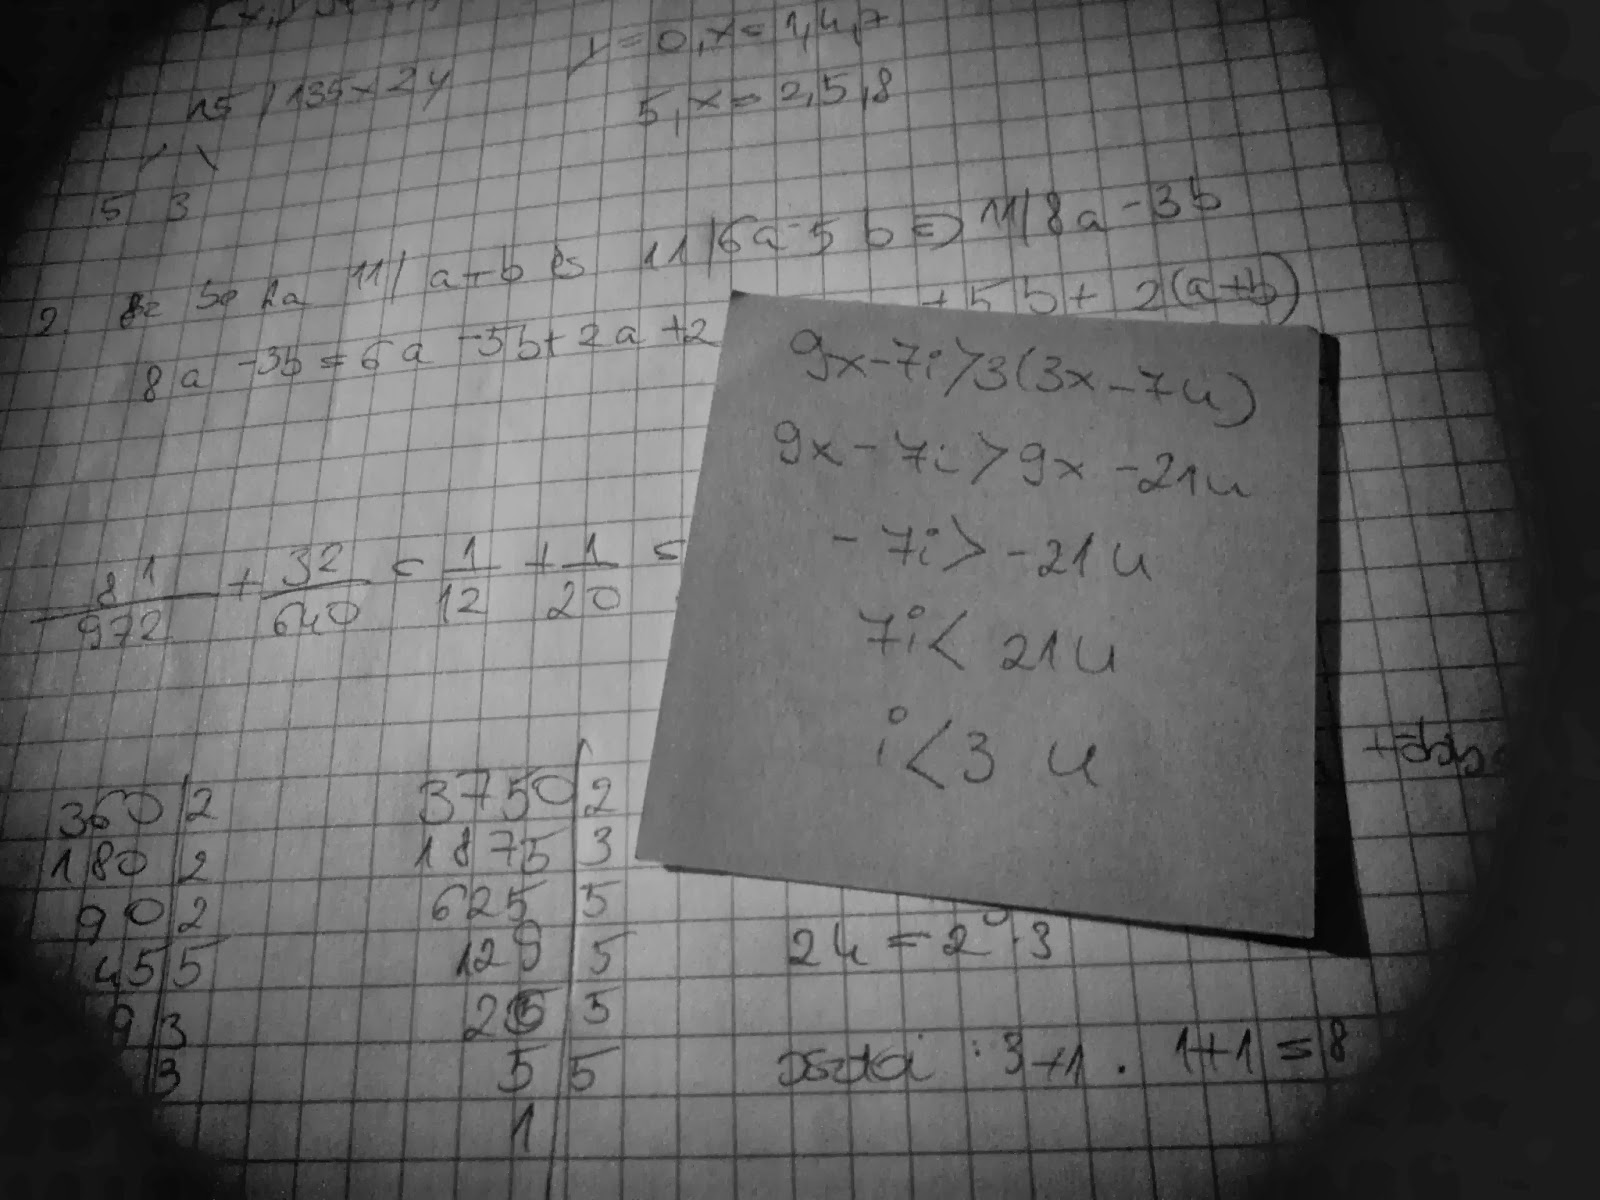 y=0, x=1,4,7
15 | 135x24
5, x=2,5,8
5 3
2. 11 | a+b és 11 | 6a-5b => 11 | 8a-3b
8a-3b=6a-5b+2a+2
+5b+2(a+b)
81/972 + 32/640 = 1/12 + 1/20 =
9x-7i>3(3x-7u)
9x-7i>9x-21u
-7i>-21u
7i<21u
i<3 u
360|2
180|2
90|2
45|5
9|3
3
3750|2
1875|3
625|5
125|5
25|5
5|5
1
24=2³·3
osztói : 3+1 · 1+1 = 8